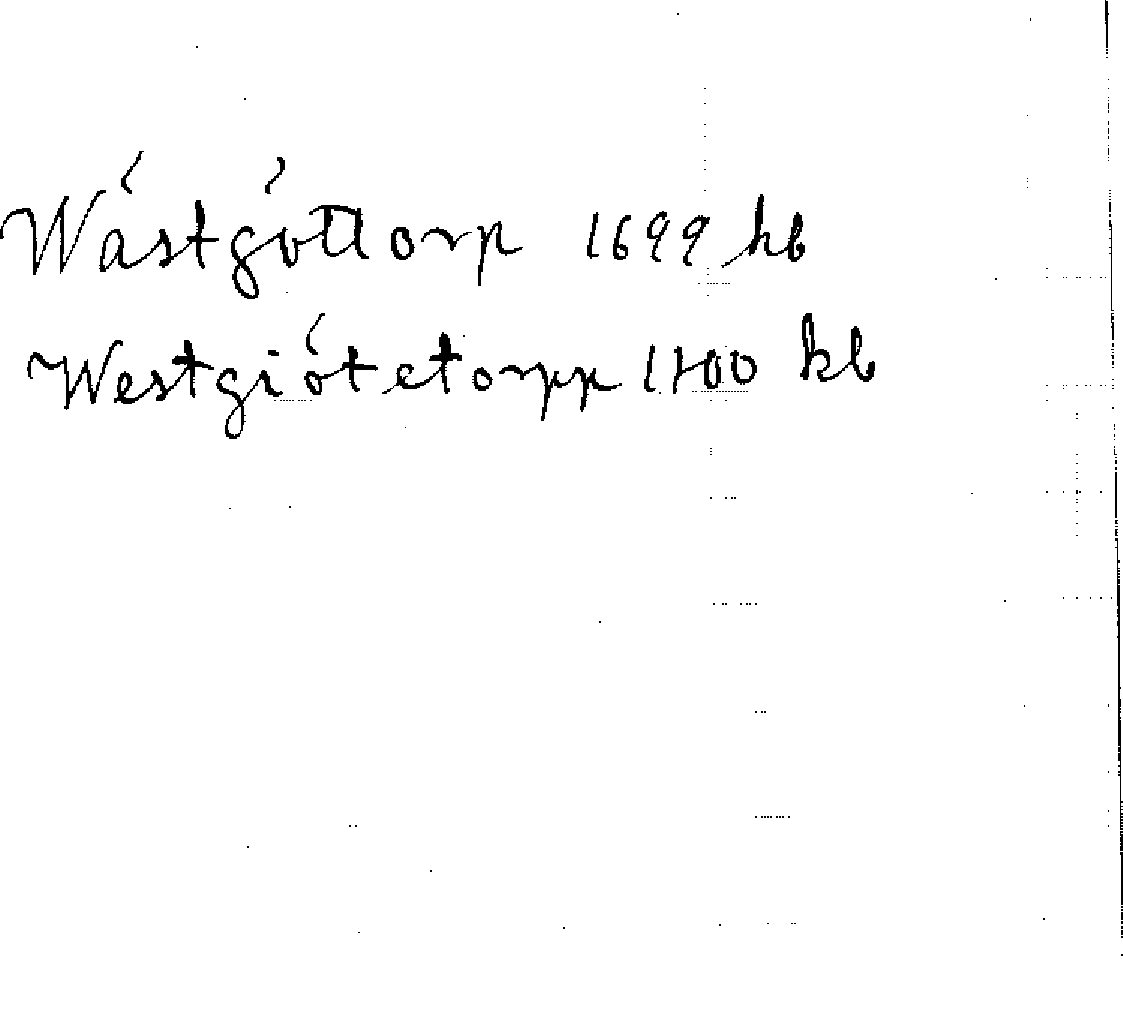 Wástgóttorp 1699 hb
Westgiótetorpp 1700 kb